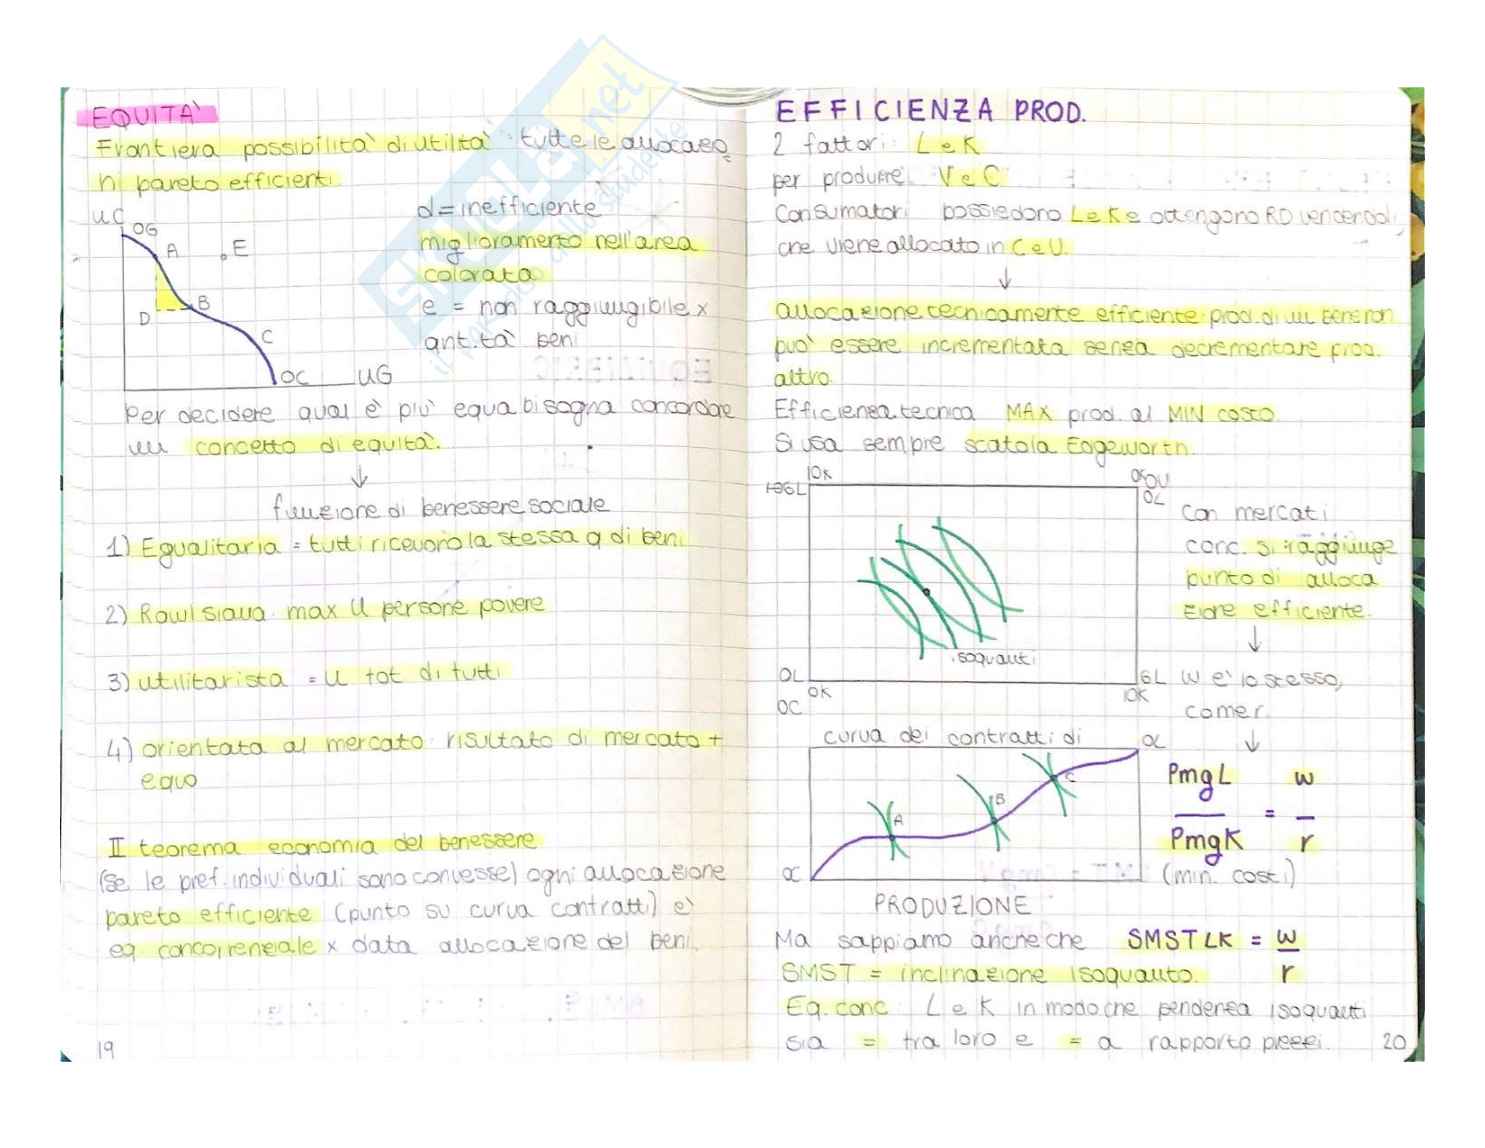 EQUITÀ
Frontiera possibilità di utilità: tutte le allocazio
ni pareto efficienti
UC
OG
A
E
B
D
C
OC
UG
d = inefficiente
miglioramento nell'area
colorata
e = non raggiungibile x
ant.tà beni
Per decidere qual è più equa bisogna concordare
un concetto di equità.
↓
funzione di benessere sociale
1) Egualitaria = tutti ricevono la stessa q di beni
2) Rawlsiana: max U persone povere
3) utilitarista = U tot di tutti
4) orientata al mercato: risultato di mercato +
equo
II teorema economia del benessere
(se le pref. individuali sono convesse) ogni allocazione
pareto efficiente (punto su curva contratti) è
eq concorrenziale x data allocazione dei beni.
19
EFFICIENZA PROD.
2 fattori: L e K
per produrre: V e C
Consumatori possiedono L e K e ottengono RD vendendoli,
che viene allocato in C e V.
↓
allocazione tecnicamente efficiente: prod. di un bene non
può essere incrementata senza decrementare prod.
altro.
Efficienza tecnica MAX prod. al MIN costo
Si usa sempre scatola Edgeworth.
10K
0K
OV
0L
isoquanti
0L
0K
OC
6L
10K
Con mercati
conc. si raggiunge
punto di alloca
zione efficiente.
↓
w è lo stesso,
come r.
↓
PmgL / PmgK = w / r
(min. costi)
curva dei contratti di
A
B
C
PRODUZIONE
Ma sappiamo anche che SMST LK = w / r
SMST = inclinazione isoquanto.
Eq. conc: L e K in modo che pendenza isoquanti
sia = tra loro e = a rapporto prezzi.
20
SKUOLA.net
il mondo dallo studente